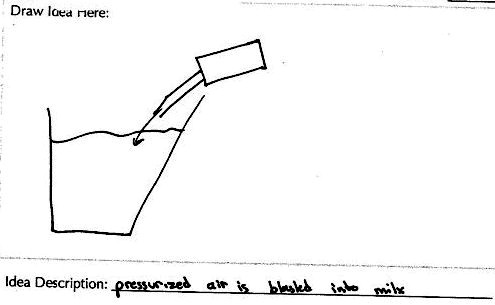 Draw Idea Here:
Idea Description: pressurized air is blasted into milk